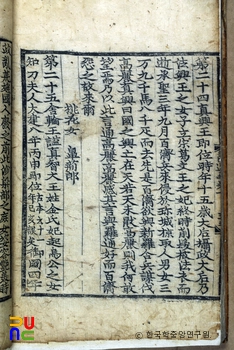 第二十四真興王即位時年十五歲太后攝政太后乃法
興王之女子立宗葛文王之妃終時削髮被法衣而
逝承聖三年九月百濟兵來侵於珎城掠取人男女三
万九千馬八千匹而去先是百濟欲與新羅合兵謀伐
高麗真興曰國之興亡在天若天未厭高麗則我何敢
望焉乃以此言通高麗高麗感其言與羅通好而百濟
怨之故來爾
桃花女 鼻荊郎
第二十五舍輪王諡真智大王姓金氏妃起烏公之女
知刀夫人大建八年丙申即位古本云十一年己亥誤矣御國四年
政亂荒婬國人廢之前此沙梁部之庶女姿容艶美時
ⓒ 한국학중앙연구원